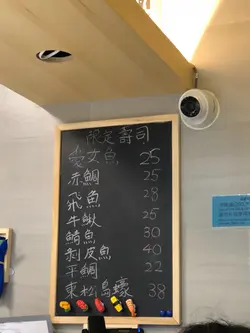 限定壽司
愛文魚 25
赤鯛 25
飛魚 28
牛鰍 25
鯖魚 30
剝皮魚 40
平鯛 22
東松島蠔 38